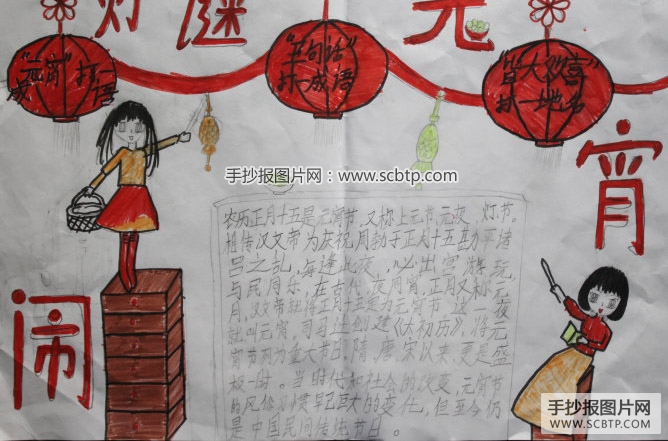 灯谜 元
"元宵"打一
成语
"半句话"
打一成语
"皆大欢喜"
打一地名
宵
闹
手抄报图片网:www.scbtp.com
农历正月十五是元宵节,又称上元节,元夜、灯节。
相传汉文帝为庆祝周勃于正月十五勘平诸
吕之乱,每逢此夜,必出宫游玩
与民同乐,在古代,夜同宵,正月又称元
月,汉文帝就将正月十五定为元宵节,这一夜
就叫元宵。司马迁创建《太初历》,将元
宵节列为重大节日。隋、唐、宋以来,更是盛
极一时。当时代和社会的改变,元宵节
的风俗习惯早已巨大的变化,但至今仍
是中国民间传统节日。
手抄报图片网
WWW.SCBTP.COM